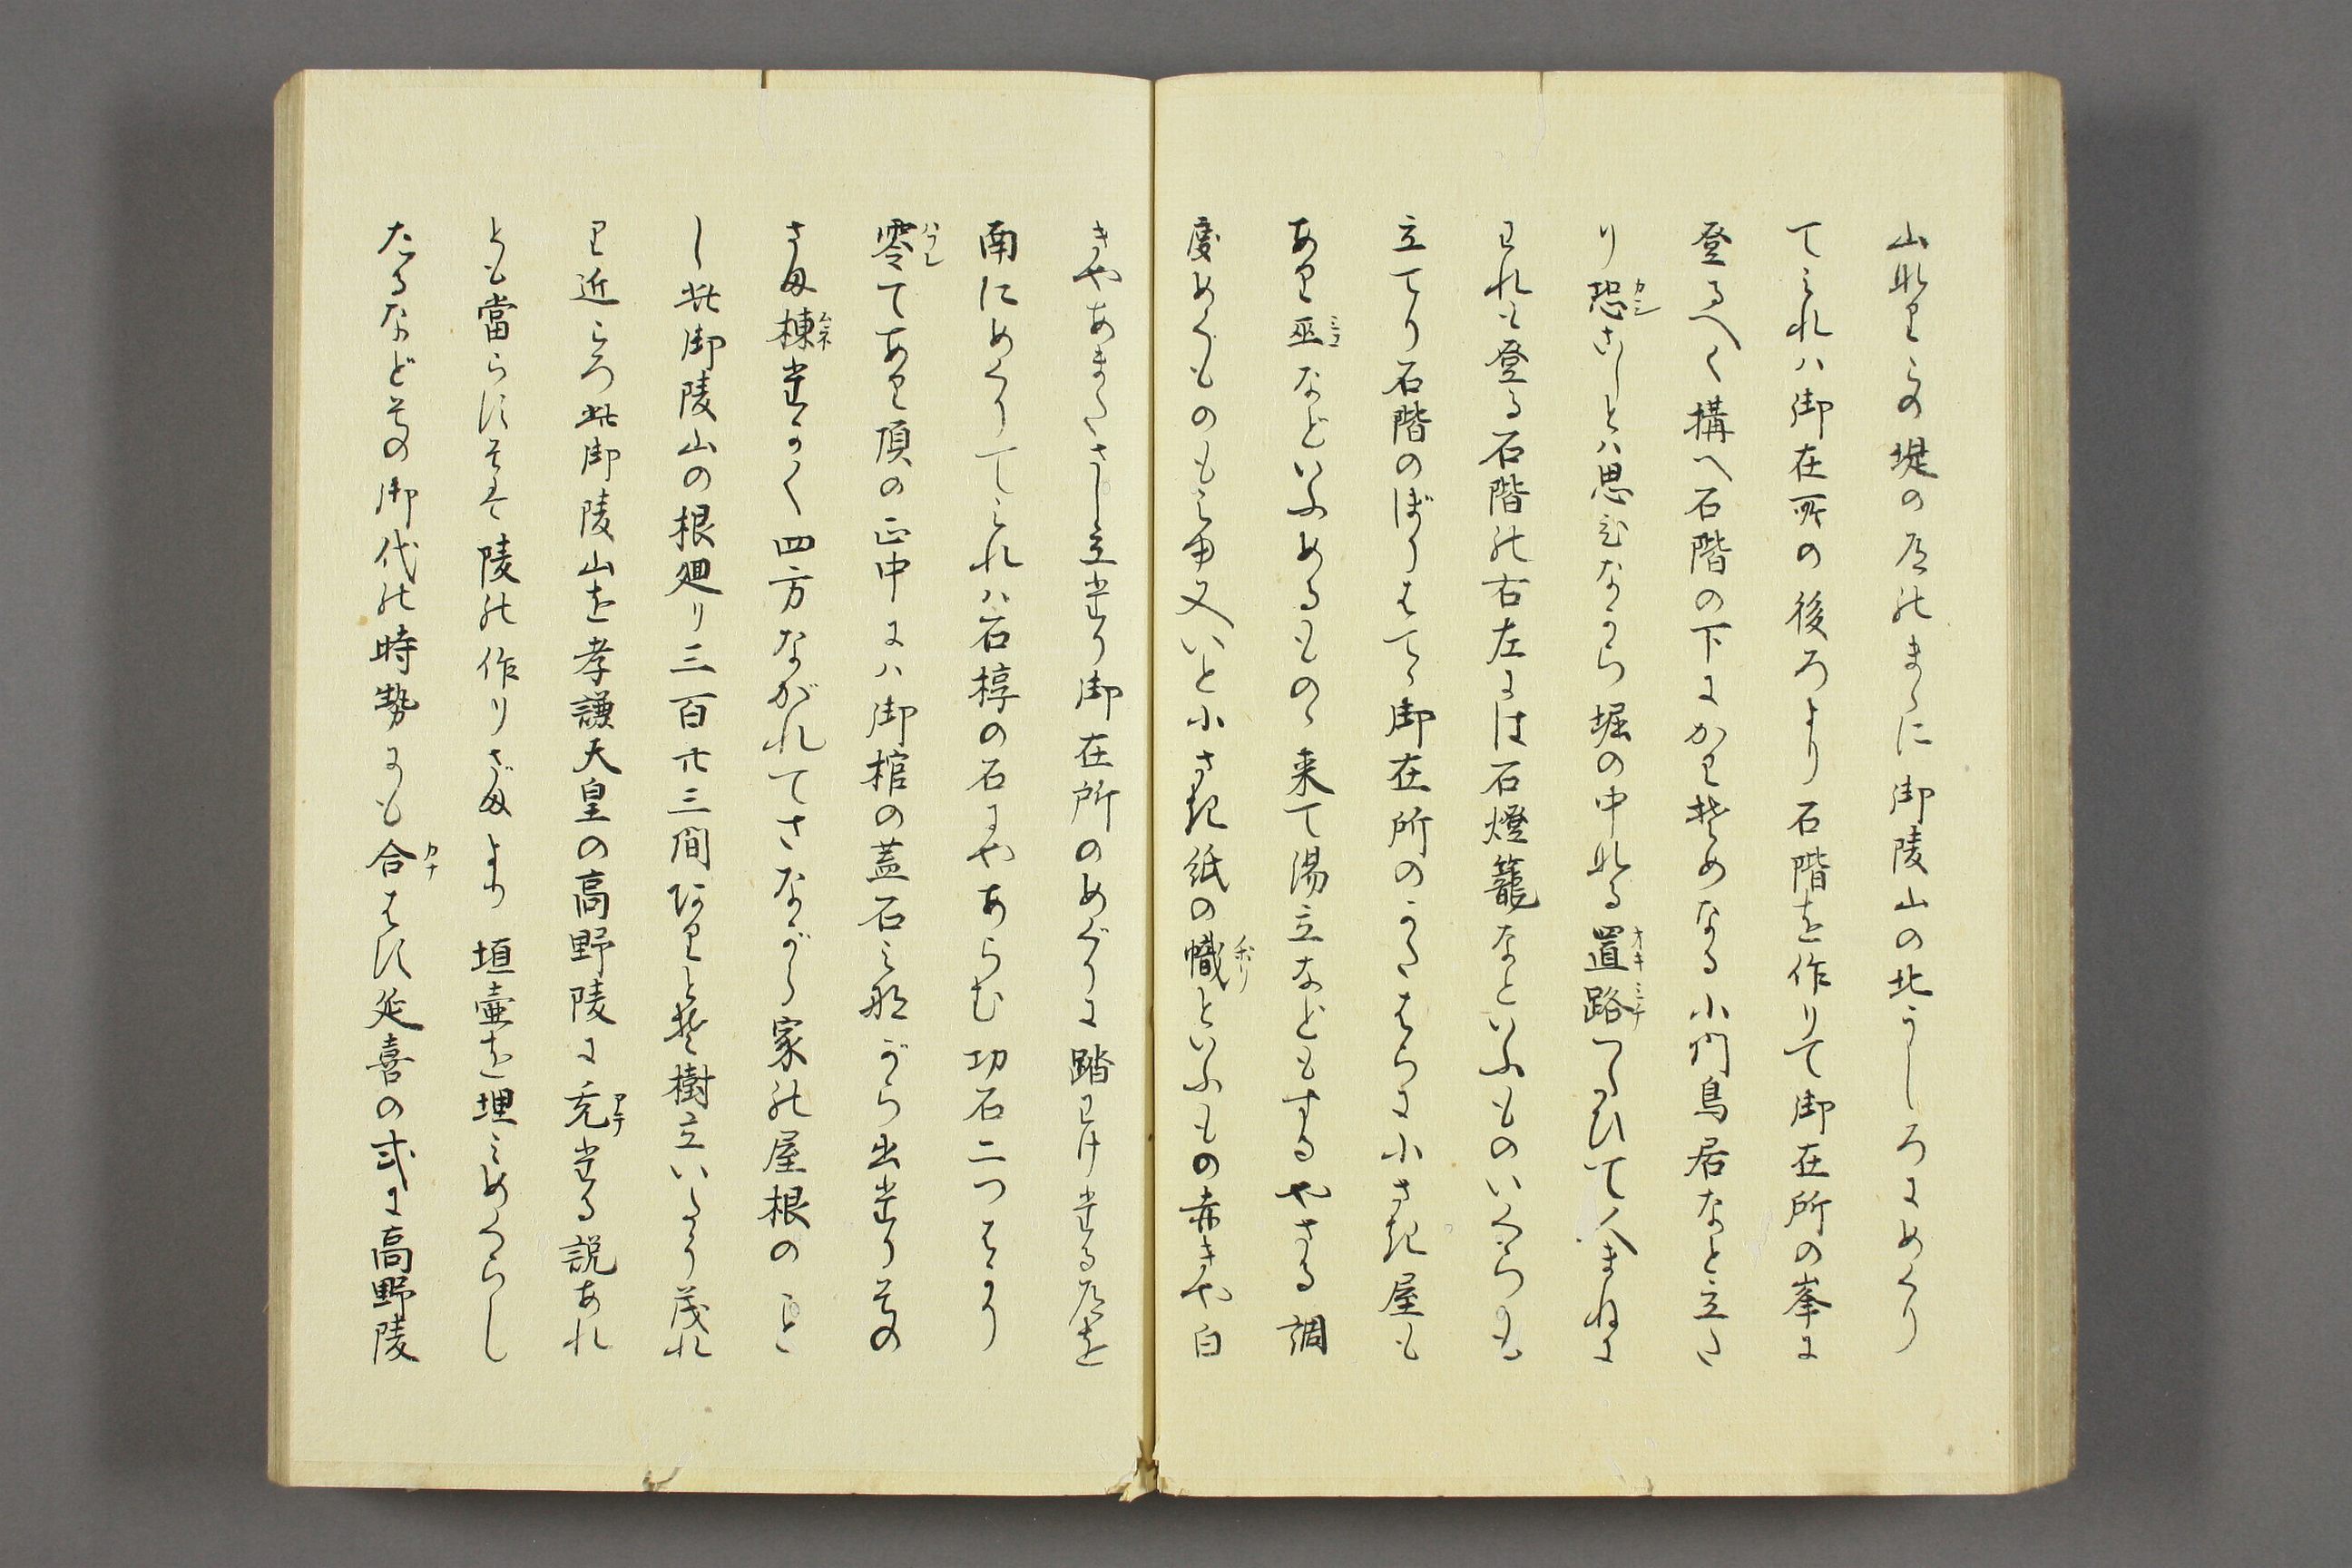 山なりこの堤の尽のまゝに御陵山の北うしろにめくり
てみれハ御在所の後ろより石階を作りて御在所の峯に
登るへく構へ石階の下にかりそめなる小門鳥居なと立た
り恐こしとハ思ひなから堀の中なる置路つたひて人まねに
われも登る石階の右左には石燈籠なといふものいくらも
立てり石階のぼりはてゝ御在所のかたはらに小さき屋も
あり巫などいふめるものゝ来て湯立などもするやさる調
度めくものもみゆ又いと小さき紙の幟といふもの赤きや白
きやあまたさし立たり御在所のめぐりに踏わけたる道を
南にめくりてみれハ石椁の石にやあらむ切石二つはかり
零てあり頂の正中にハ御棺の蓋石みながら出たりその
さま棟たかく四方ながれてさながら家の屋根のこと
し此御陵山の根廻り三百廿三間ありとそ樹立いたう茂れ
り近ころ此御陵山を孝謙天皇の高野陵に充たる説あれ
とも當らすそは陵の作りざまより垣壷を埋みめくらし
たるなどその御代の時勢にも合はす延喜の式に高野陵